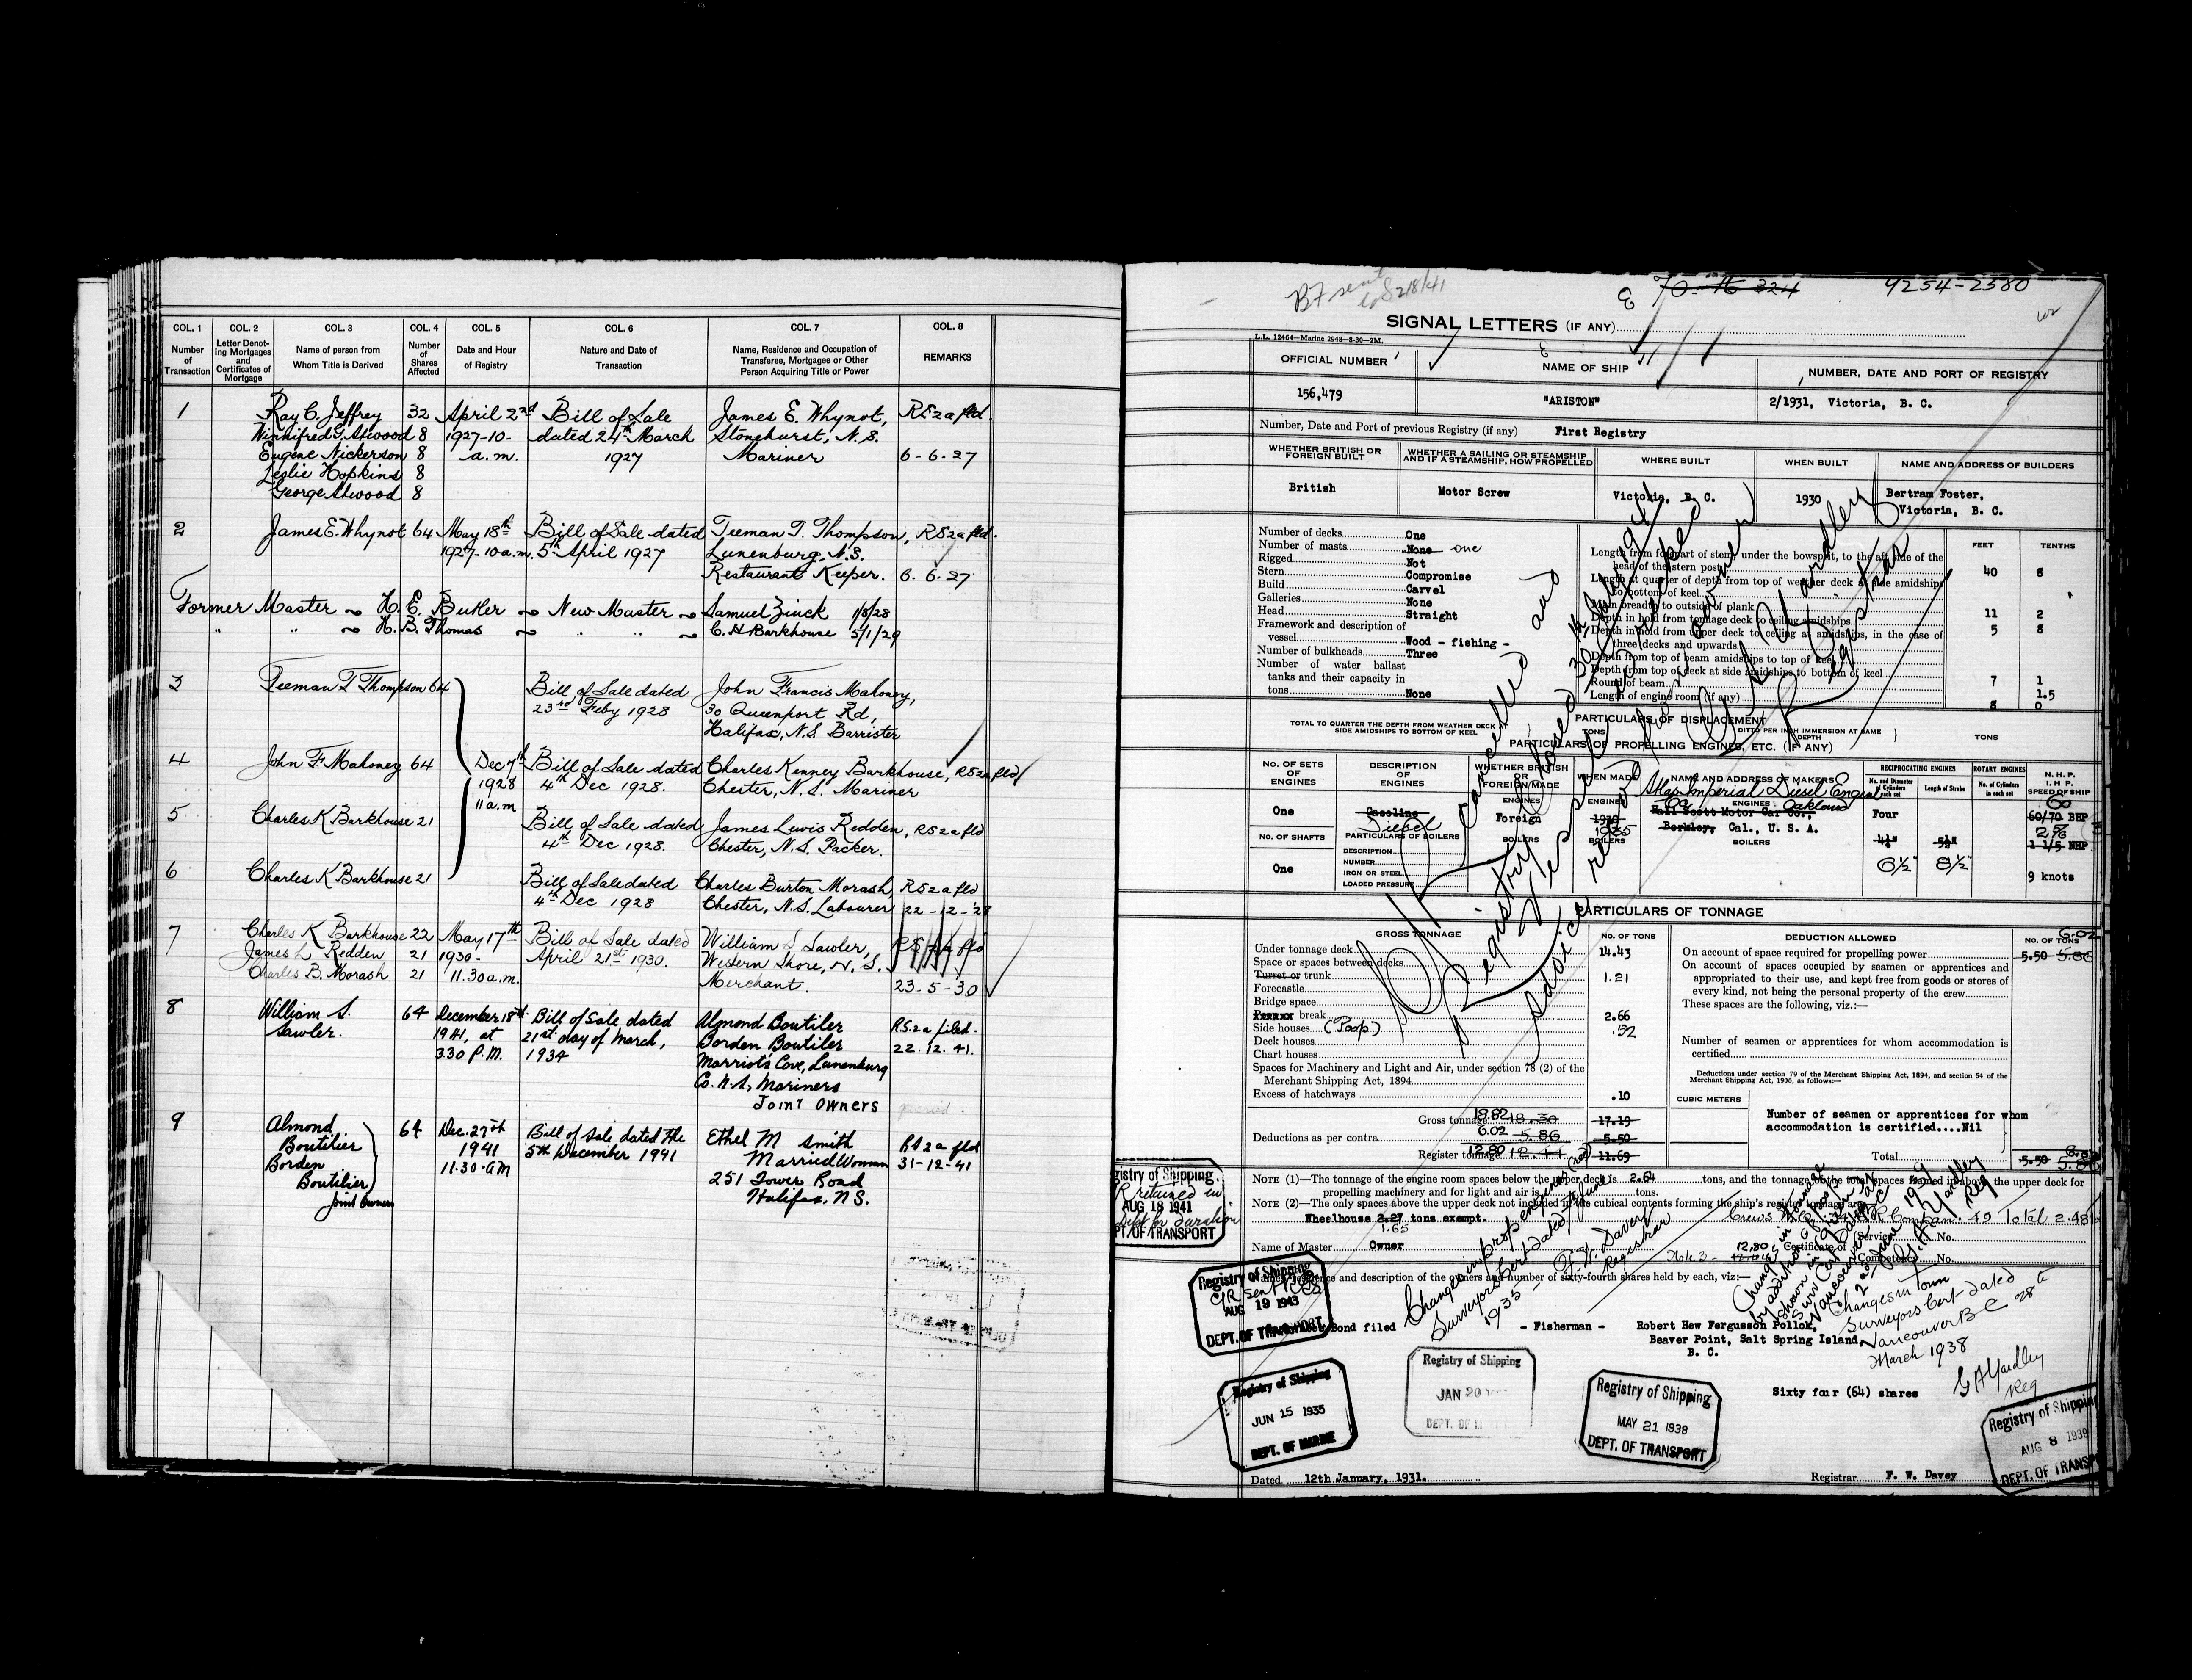 COL. 1 COL. 2 COL. 3 COL. 4 COL. 5 COL. 6 COL. 7 COL. 8
Number of Transaction
Letter Denoting Mortgages and Certificates of Mortgage
Name of person from Whom Title is Derived
Number of Shares Affected
Date and Hour of Registry
Nature and Date of Transaction
Name, Residence and Occupation of Transferee, Mortgagee or Other Person Acquiring Title or Power
REMARKS
1 Ray C. Jeffrey 32 April 2nd Bill of Sale James E. Whynot, R52a fld.
Winnifred G. Atwood 8 1927-10- dated 24th March Stonehurst, N.S.
Eugene Nickerson 8 a.m. 1927 Mariner 6-6-27
Leslie Hopkins 8
George Atwood 8
2 James E. Whynot 64 May 18th Bill of Sale dated Teeman T. Thompson, R52a fld.
1927-10a.m. 5th April 1927 Lunenburg, N.S.
Restaurant Keeper. 6.6.27
Former Master ~ H. E. Butler ~ New Master ~ Samuel Zinck 1/8/28
" " ~ H. B. Thomas ~ " " ~ C. H Barkhouse 5/1/29
3 Teeman T Thompson 64 Bill of Sale dated John Francis Mahoney,
23rd Feby 1928 30 Queenport Rd,
Halifax, N.S. Barrister
4 John F Mahoney 64 Dec 7th Bill of Sale dated Charles Kenney Barkhouse, R52a fld
1928 4th Dec 1928. Chester, N.S. Mariner
11 a.m
5 Charles K Barkhouse 21 Bill of Sale dated James Lewis Redden, R52a fld
4th Dec 1928. Chester, N.S. Packer.
6 Charles K Barkhouse 21 Bill of Sale dated Charles Burton Morash, R52a fld
4th Dec 1928 Chester, N.S. Labourer 22-12-'28
7 Charles K Barkhouse 22 May 17th Bill of Sale dated William S. Sawler, R52a fld
James L Redden 21 1930- April 21st 1930. Western Shore, N.S.
Charles B. Morash 21 11.30 a.m. Merchant. 23-5-30
8 William S. 64 December 18th Bill of Sale dated Almond Boutilier R52a filed.
Sawler. 1941, at 21st day of March, Borden Boutilier 22.12.41.
3.30 P.M. 1934 Marriot's Cove, Lunenburg
Co. N.S, Mariners
Joint Owners
9 Almond 64 Dec. 27th Bill of Sale dated the Ethel M Smith R52a fld
Boutilier 1941 5th December 1941 Married Woman 31-12-41
Borden 11.30 AM 251 Tower Road
Boutilier Halifax. N.S.
Joint Owners
B7 sent 2/8/41
70-16-324 9254-2580
SIGNAL LETTERS (IF ANY)
L.L. 12464—Marine 2948—8-30—2M.
OFFICIAL NUMBER NAME OF SHIP NUMBER, DATE AND PORT OF REGISTRY
156,479 "ARISTON" 2/1931, Victoria, B. C.
Number, Date and Port of previous Registry (if any) First Registry
WHETHER BRITISH OR FOREIGN BUILT
WHETHER A SAILING OR STEAMSHIP AND IF A STEAMSHIP, HOW PROPELLED
WHERE BUILT WHEN BUILT NAME AND ADDRESS OF BUILDERS
British Motor Screw Victoria, B. C. 1930 Bertram Foster,
Victoria, B. C.
Number of decks One
Number of masts None one
Rigged Not
Stern Compromise
Build Carvel
Galleries None
Head Straight
Framework and description of vessel Wood - fishing -
Number of bulkheads Three
Number of water ballast tanks and their capacity in tons None
FEET TENTHS
Length from fore part of stem, under the bowsprit, to the aft side of the head of the stern post 40 8
Length at quarter of depth from top of weather deck at side amidships to bottom of keel
Main breadth to outside of plank 11 2
Depth in hold from tonnage deck to ceiling amidships 5 8
Depth in hold from upper deck to ceiling at amidships, in the case of three decks and upwards
Depth from top of beam amidships to top of keel
Depth from top of deck at side amidships to bottom of keel 7 1
Round of beam 1.5
Length of engine room (if any) 8 0
PARTICULARS OF DISPLACEMENT
TOTAL TO QUARTER THE DEPTH FROM WEATHER DECK AT SIDE AMIDSHIPS TO BOTTOM OF KEEL TONS DITTO PER INCH IMMERSION AT SAME DEPTH TONS
PARTICULARS OF PROPELLING ENGINES, ETC. (IF ANY)
NO. OF SETS OF ENGINES DESCRIPTION OF ENGINES WHETHER BRITISH OR FOREIGN MADE WHEN MADE NAME AND ADDRESS OF MAKERS RECIPROCATING ENGINES ROTARY ENGINES N.H.P. I.H.P. SPEED OF SHIP
No. and Diameter of Cylinders each set Length of Stroke No. of Cylinders in each set
Atlas Imperial Diesel Engine
Co. Oakland 60
One Gasoline Foreign 1930 Hall Scott Motor Car Co., Four 60/70 BHP
Diesel 1935 Berkley, Cal., U. S. A.
NO. OF SHAFTS PARTICULARS OF BOILERS BOILERS BOILERS BOILERS 4¼" 5½" 1 1/5 NHP
DESCRIPTION
NUMBER
IRON OR STEEL
LOADED PRESSURE
One 6½" 8½" 9 knots
PARTICULARS OF TONNAGE
GROSS TONNAGE NO. OF TONS DEDUCTION ALLOWED NO. OF TONS
6.02
Under tonnage deck 14.43 On account of space required for propelling power 5.50 5.86
Space or spaces between decks
Turret or trunk 1.21
Forecastle
Bridge space
break 2.66
Side houses (Poop) .52
Deck houses
Chart houses
Spaces for Machinery and Light and Air, under section 78 (2) of the Merchant Shipping Act, 1894
Excess of hatchways .10
On account of spaces occupied by seamen or apprentices and appropriated to their use, and kept free from goods or stores of every kind, not being the personal property of the crew
These spaces are the following, viz.:—
Number of seamen or apprentices for whom accommodation is certified
Deductions under section 79 of the Merchant Shipping Act, 1894, and section 54 of the Merchant Shipping Act, 1906, as follows:—
CUBIC METERS
Number of seamen or apprentices for whom
accommodation is certified....Nil
Gross tonnage 18.82 18.30 17.19
Deductions as per contra 6.02 5.86 5.50
Register tonnage 12.80 12.44 11.69
Total 5.50 5.86 6.02
NOTE (1)—The tonnage of the engine room spaces below the upper deck is 2.64 tons, and the tonnage of the total spaces framed in above the upper deck for propelling machinery and for light and air is tons.
NOTE (2)—The only spaces above the upper deck not included in the cubical contents forming the ship's register tonnage are:
Wheelhouse 2.27 tons exempt. Total 2.48
1.65
Name of Master Owner Note 3- 12.80 Certificate of Service No.
Competency No.
Names, residence and description of the owners and number of sixty-fourth shares held by each, viz:—
Bond filed - Fisherman - Robert Hew Fergusson Pollok,
Beaver Point, Salt Spring Island,
B. C.
Sixty four (64) shares
Cancelled and
Registry Closed 30th July 1941
Vessel as requested
from owner
Advice rec'd
G A Yardley
Registrar
Change in prop engines
Surveyors Cert dated June
1935
F. W. Davey
Registrar
Change in tonnage
by addition of Poop as
shown in
Surv Cert Dated at
Vancouver BC
2nd June 1939
G. A. Yardley
Reg
Changes in Tonn
Surveyors Cert dated
Vancouver B C 28th
March 1938
G A Yardley
Reg
Registry of Shipping
retained in
AUG 18 1941
Dept for duration
DEPT. OF TRANSPORT
Registry of Shipping
AUG 19 1943
DEPT. OF TRANSPORT
Registry of Shipping
JUN 15 1935
DEPT. OF MARINE
Registry of Shipping
JAN 20
Registry of Shipping
MAY 21 1938
DEPT. OF TRANSPORT
Registry of Shipping
AUG 8 1939
DEPT. OF TRANSP
Dated 12th January, 1931. Registrar F. W. Davey